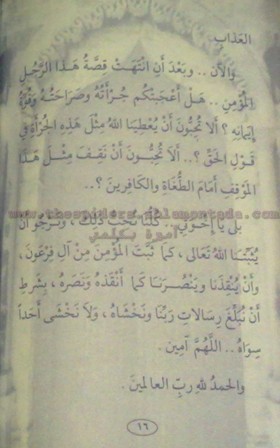 العَذابِ.
والآن .. وبَعْدَ أنِ انْتَهَتْ قِصَّةُ هَذا الرَّجُلِ
المُؤْمِنِ .. هَلْ أَعْجَبَتْكُم جُرْأَتُهُ وصَرَاحَتُهُ وَقُوَّةُ
إيمَانِهِ ؟ أَلا تُحِبُّونَ أَنْ يُعْطِيَنا اللهُ مِثْلَ هَذِهِ الجُرْأَةِ في
قَوْلِ الحَقِّ ؟.. أَلاَ تُحِبُّونَ أَنْ نَقِفَ مِثْلَ هَذا
المَوْقِفِ أَمَامَ الطُّغَاةِ والكَافِرِينَ ؟..
بَلى يَا إخْوَتِي .. كُلُّنا نُحِبُّ ذَلِكَ ، ونَرْجُو أَنْ
يُثَبِّتَنَا اللهُ تَعَالى ، كَمَا ثَبَّتَ المُؤْمِنَ مِنْ آلِ فِرْعَوْنَ ،
وأَنْ يُنْقِذَنا ويَنْصُرَنا كَمَا أَنْقَذَهُ ونَصَرَهُ ، بِشَرْطِ
أَنْ نُبَلِّغَ رِسَالاتِ رَبِّنَا ونَخْشَاهُ ، وَلاَ نَخْشَى أَحَداً
سِوَاهُ .. اللَّهُمَّ آمِين .
والحمدُ للهِ ربِّ العالمينَ .
١٦